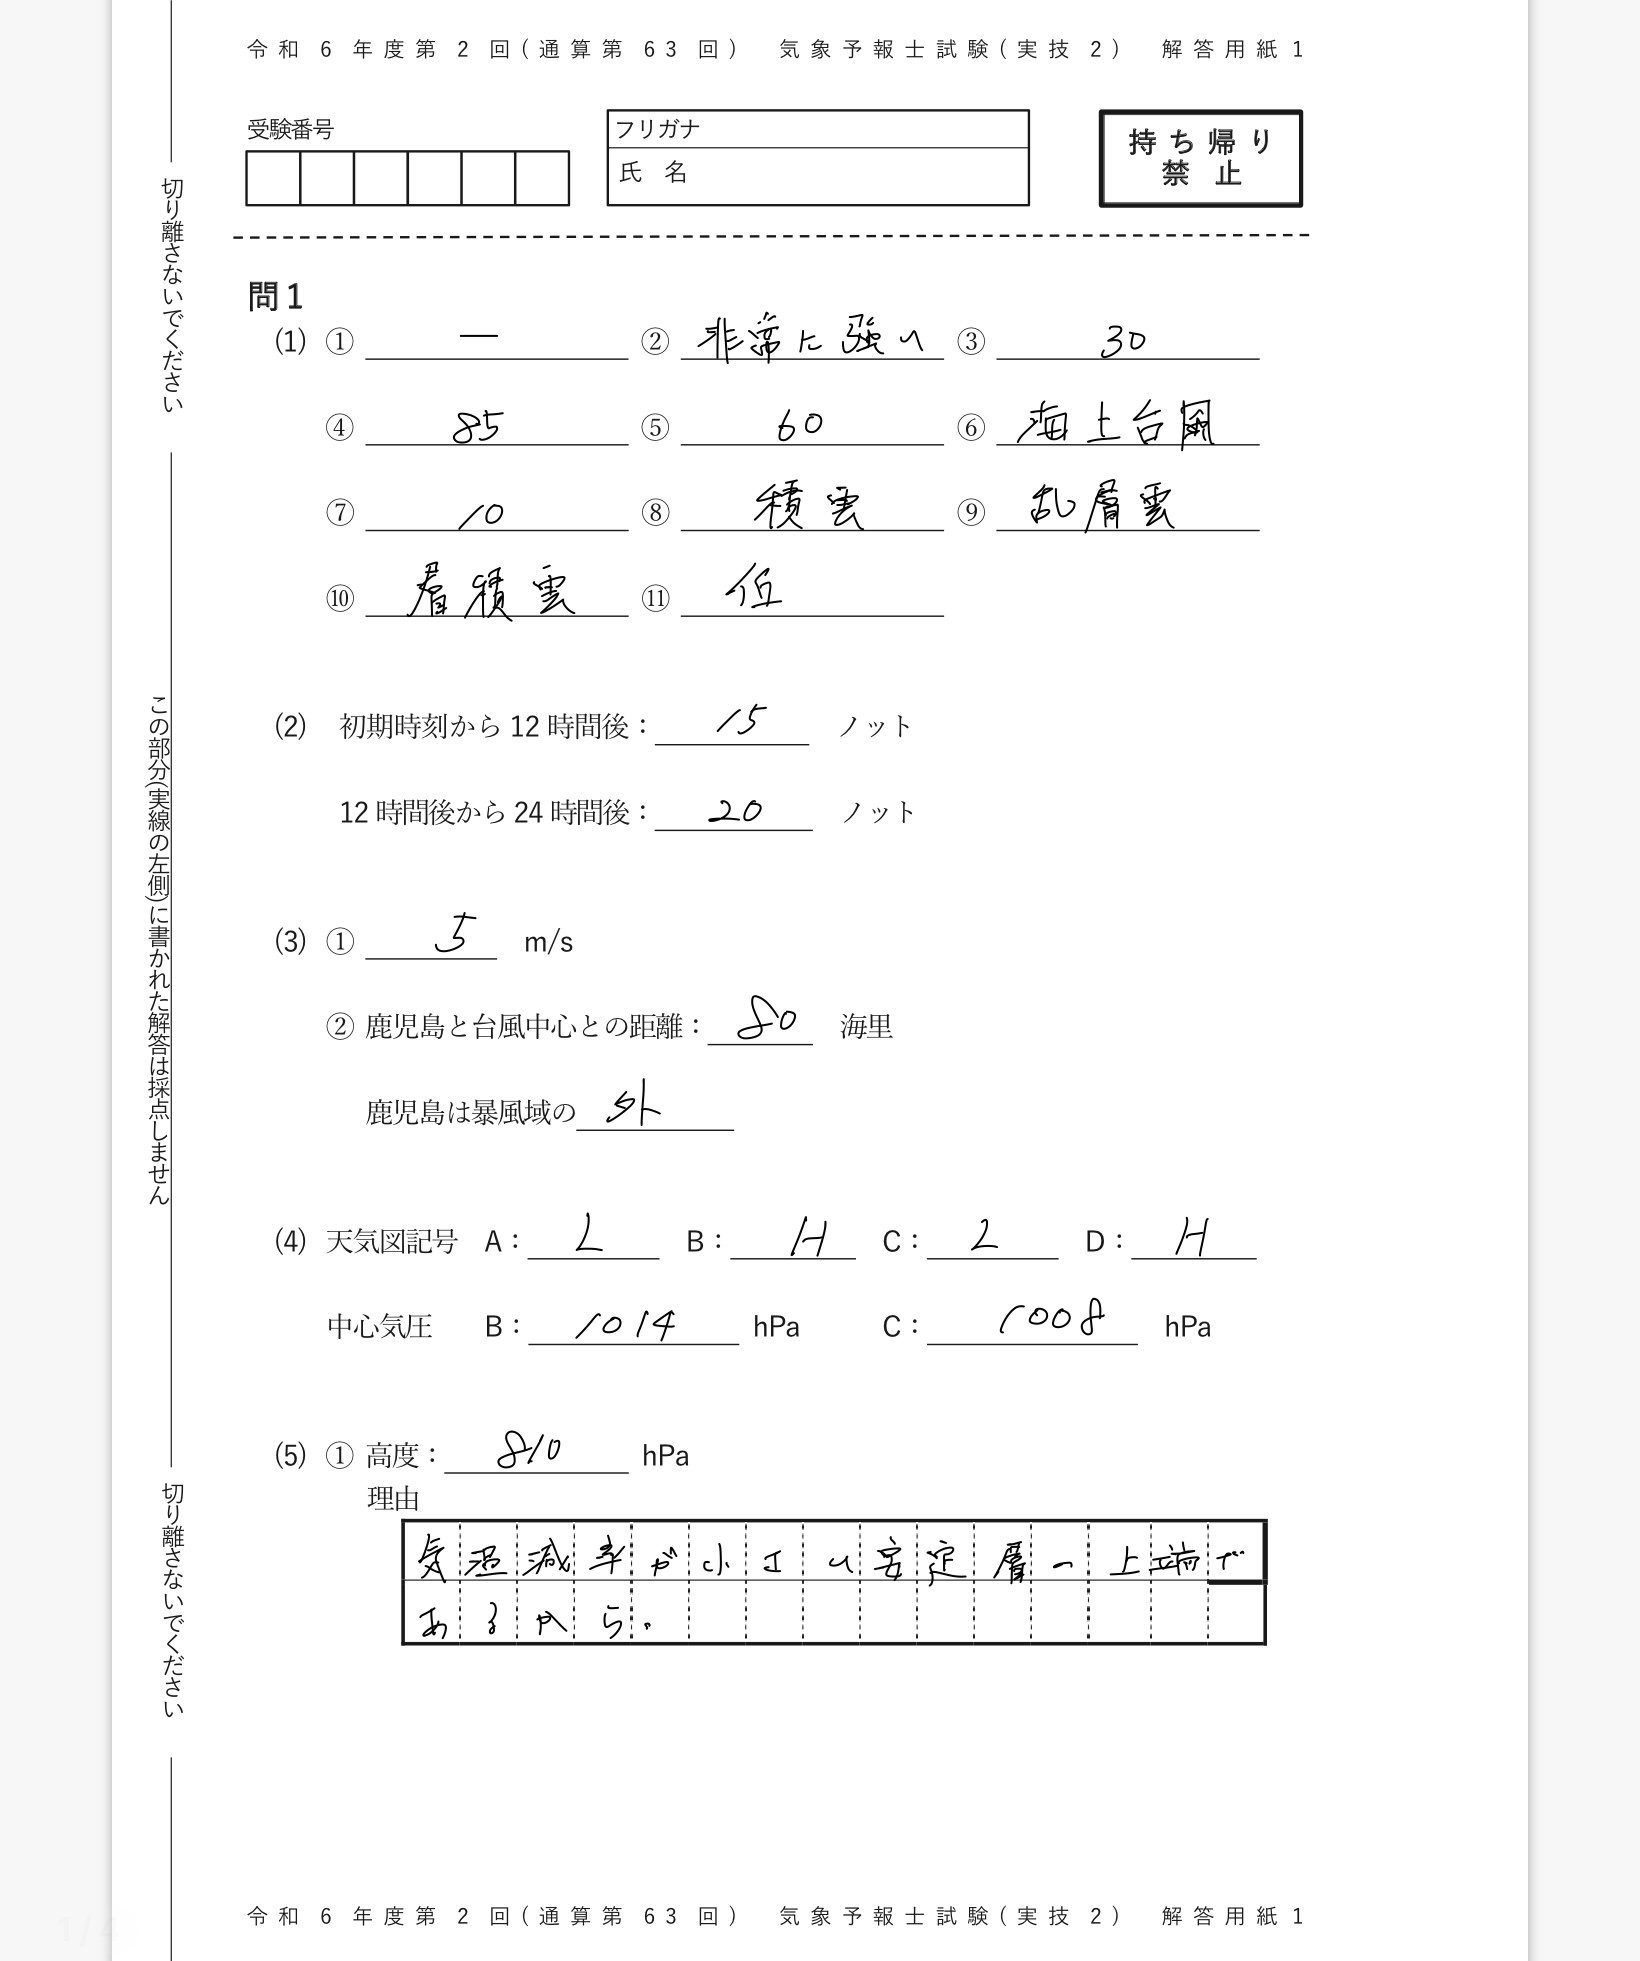 令和 6 年度第 2 回(通算第 63 回) 気象予報士試験(実技 2) 解答用紙 1
受験番号
フリガナ
氏 名
持ち帰り
禁 止
切り離さないでください
この部分(実線の左側)に書かれた解答は採点しません
切り離さないでください
問1
(1) ① ー ② 非常に強い ③ 30
④ 85 ⑤ 60 ⑥ 海上台風
⑦ 10 ⑧ 積雲 ⑨ 乱層雲
⑩ 層積雲 ⑪ 低
(2) 初期時刻から 12 時間後: 15 ノット
12 時間後から 24 時間後: 20 ノット
(3) ① 5 m/s
② 鹿児島と台風中心との距離: 80 海里
鹿児島は暴風域の 外
(4) 天気図記号 A: L B: H C: L D: H
中心気圧 B: 1014 hPa C: 1008 hPa
(5) ① 高度: 810 hPa
理由
気温減率が小さい安定層の上端で
あるから.
令和 6 年度第 2 回(通算第 63 回) 気象予報士試験(実技 2) 解答用紙 1
1/4